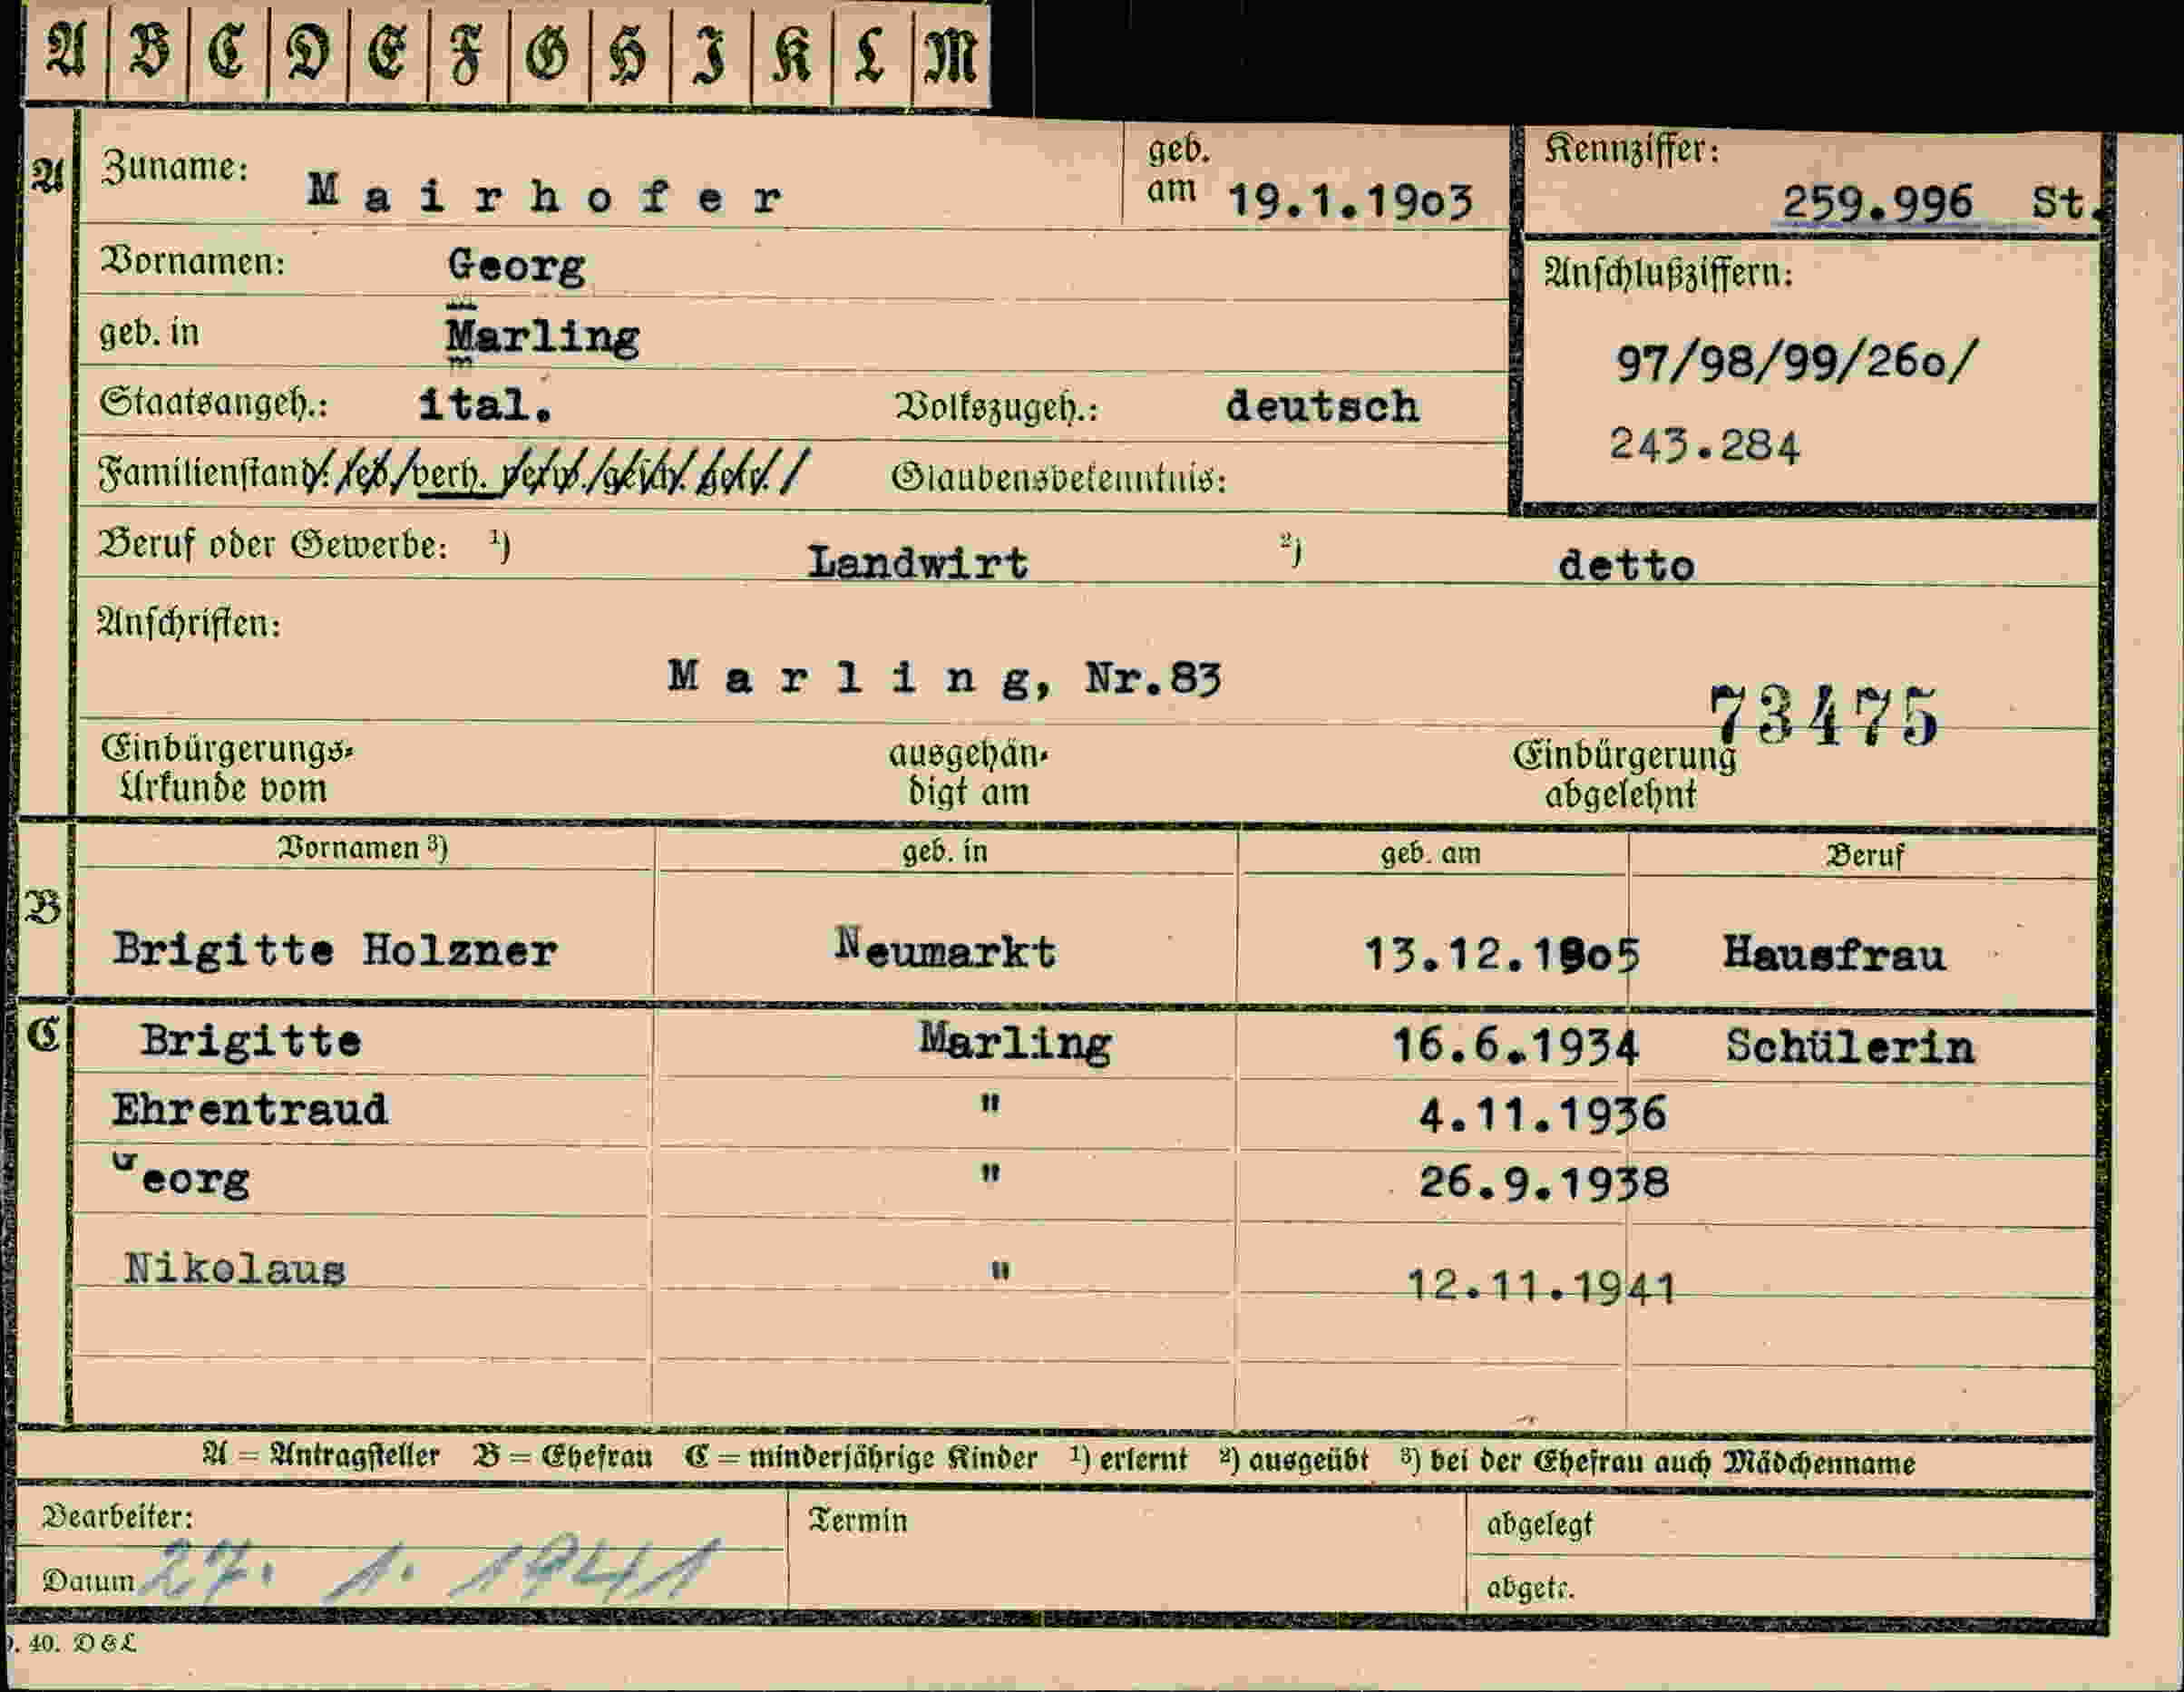 A B C D E F G H I K L M
A Zuname: Mairhofer geb. am 19.1.19o3 Kennziffer: 259.996 St.
Vornamen: Georg
geb. in Marling
Anschlußziffern:
97/98/99/26o/
243.284
Staatsangeh.: ital. Volkszugeh.: deutsch
Familienstand: led. verh. verw. gesch. Glaubensbekenntnis:
Beruf oder Gewerbe: 1) Landwirt 2) detto
Anschriften:
Marling, Nr.83
73475
Einbürgerungs- ausgehän- Einbürgerung
Urkunde vom digt am abgelehnt
Vornamen 3) geb. in geb. am Beruf
B
Brigitte Holzner Neumarkt 13.12.19o5 Hausfrau
C Brigitte Marling 16.6.1934 Schülerin
Ehrentraud " 4.11.1936
Georg " 26.9.1938
Nikolaus " 12.11.1941
A = Antragsteller B = Ehefrau C = minderjährige Kinder 1) erlernt 2) ausgeübt 3) bei der Ehefrau auch Mädchenname
Bearbeiter: Termin abgelegt
Datum 27. 1. 1941 abgetr.
. 40. D & L